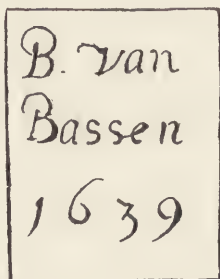 B. van
Bassen
1639